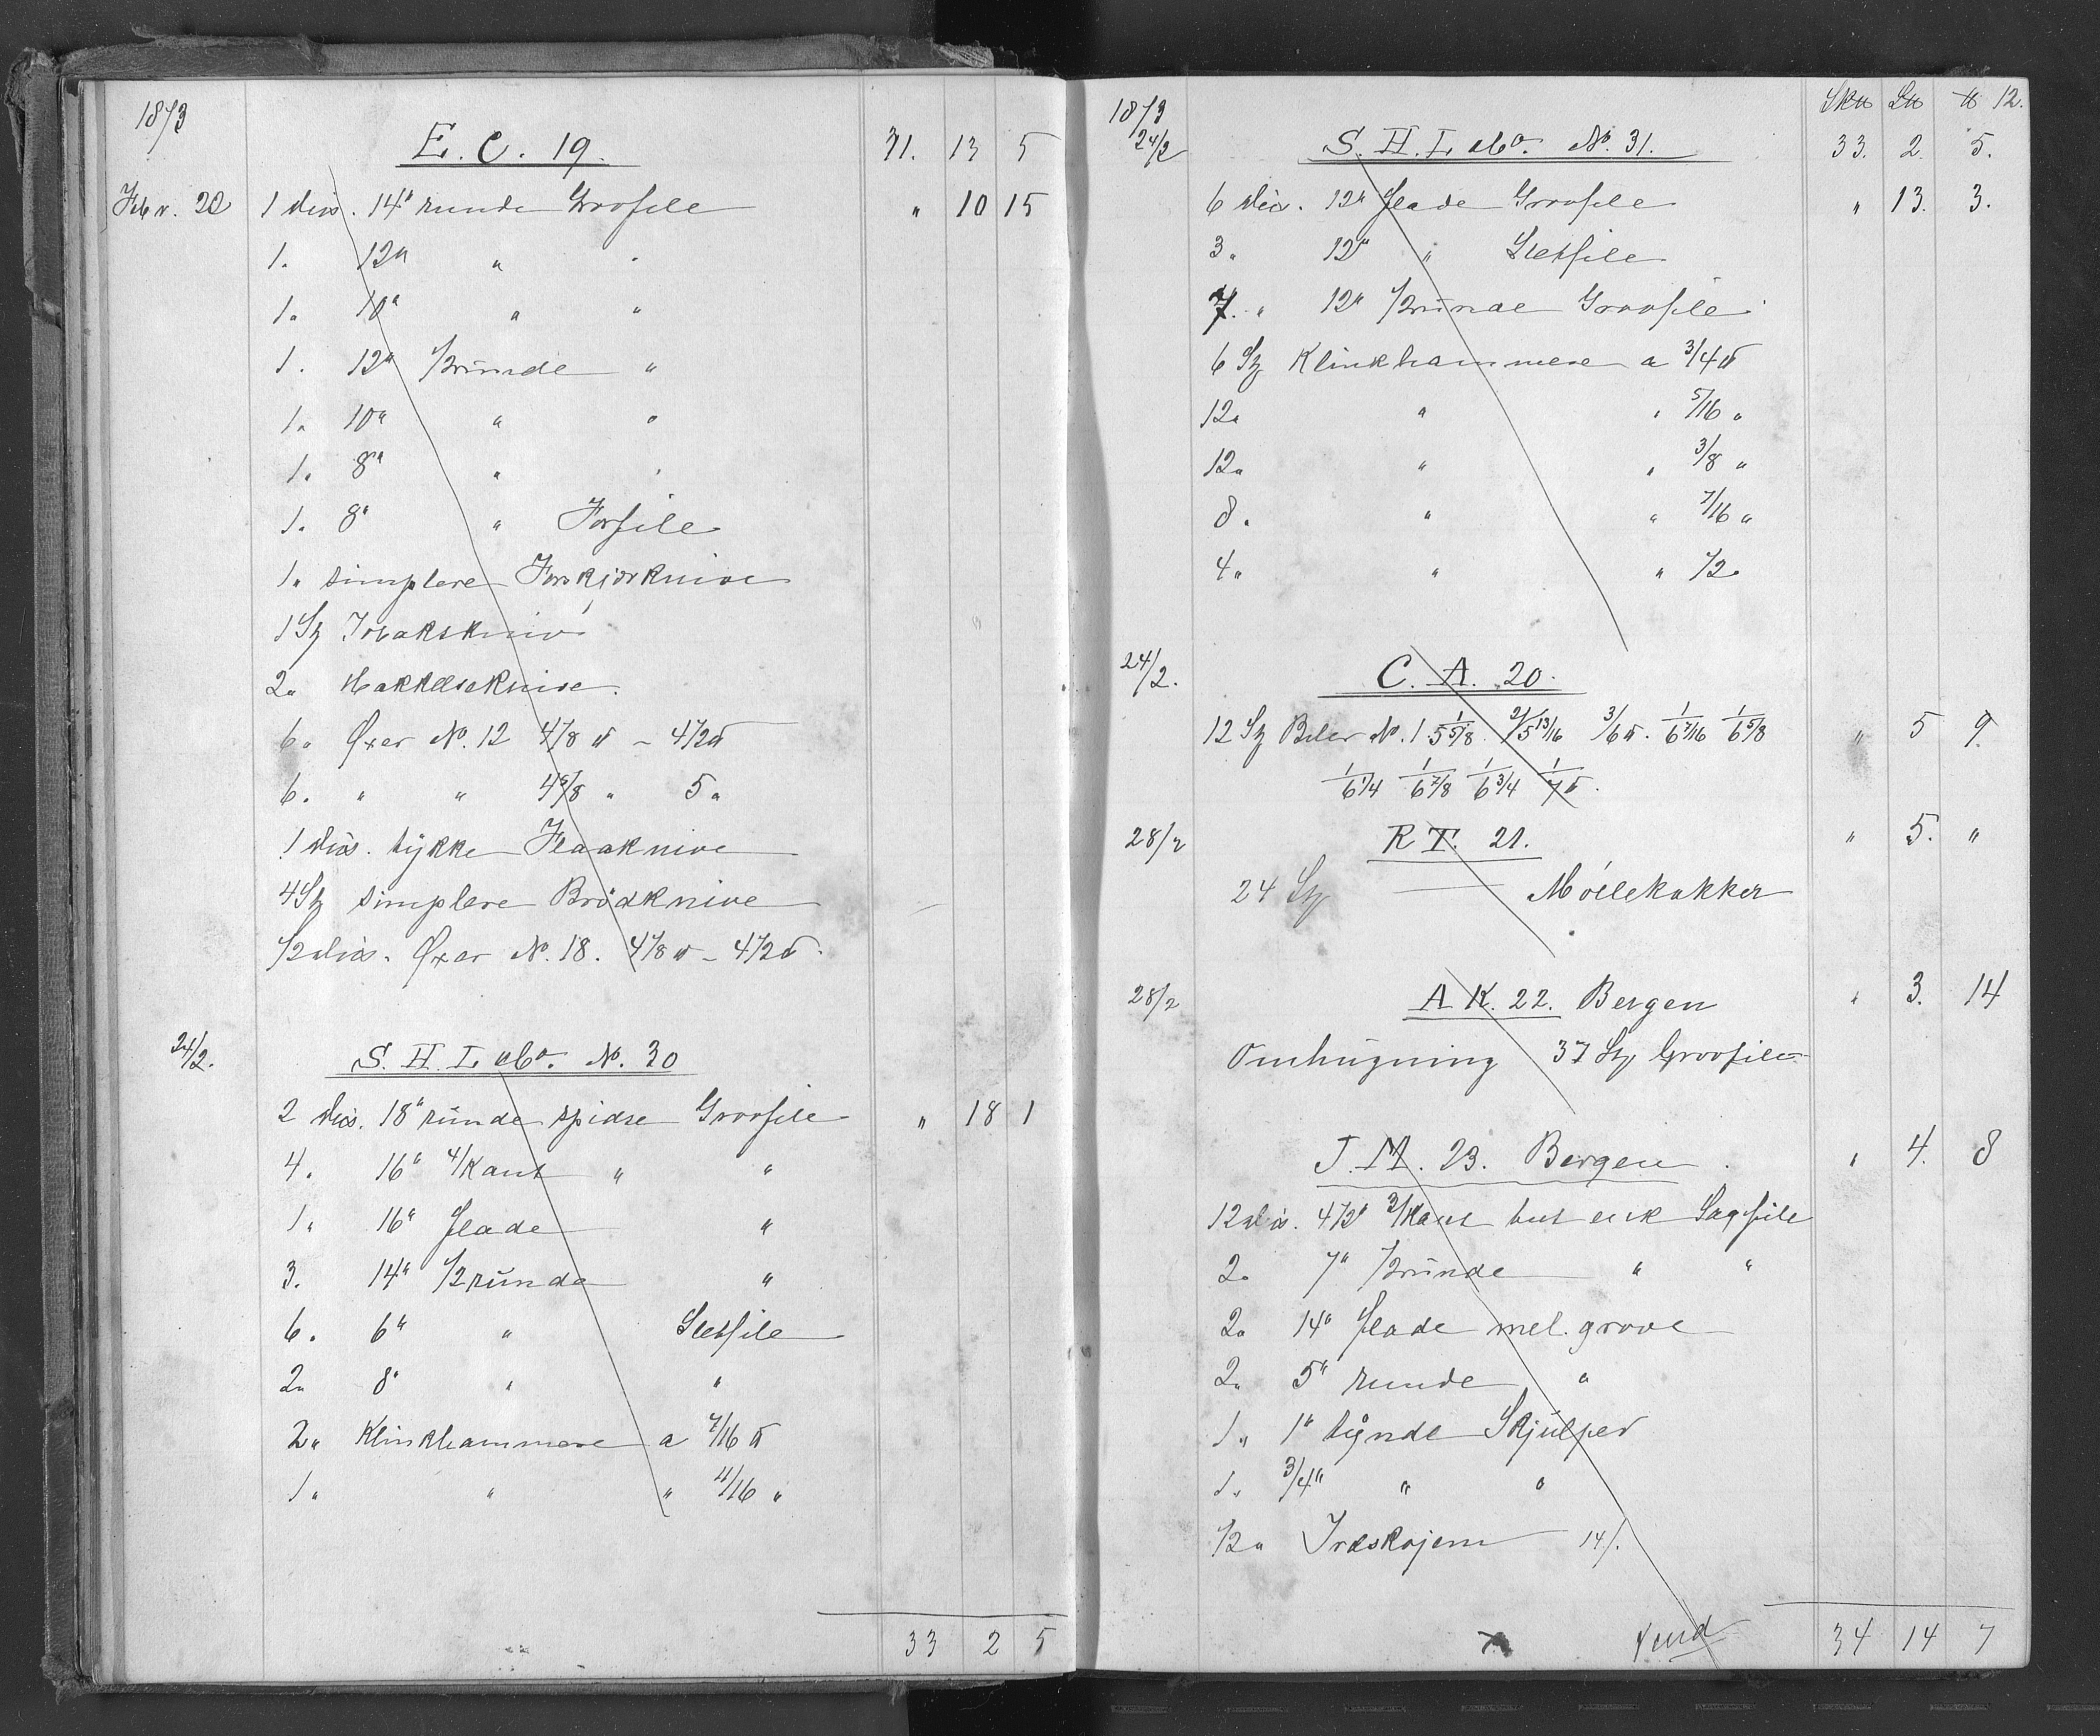 1873
E. C. 19. 31. 13 5
Febr. 20 1 dus. 14" runde Grovfile " 10 15
1. 12" " "
1" 10" " "
1. 12" 1/2 runde "
1" 10" " "
1" 8" " "
1. 8" " Forfile
1" simplere Forskjærknive
1 St Tobakskniv
2" Hakkelseknive.
6" Øxer No. 12 4 1/8 ℔ - 4 1/2 ℔
6. " " 4 5/8 " 5 "
1 dus. tykke Flaaknive
4 St simplere Brödknive
1/2 dus. Øxer No. 18. 4 1/8 ℔ - 4 1/2 ℔.
24/2. S. H. L. No. 30
2 dus. 18" runde spidse Grovfile " 18 1
4. 16" 4/kant " "
1" 16" flade "
3. 14" 1/2 runde "
6. 6" " Sletfile
2" 8" " "
2" Klinkhammere a 7/16 ℔
1" " " 11/16 "
33 2 5
1873 Sk℔ L℔ ℔ 12.
24/2 S. H. L. No. 31. 33. 2. 5.
6 dus. 12" flade Grovfile " 13. 3.
3" 12" " Sletfile
7. " 12" 1/2 runde Grovfile
6 St Klinkhammere a 3/4 ℔
12" " " 5/16 "
12" " " 3/8 "
8. " " 7/16 "
4" " " 1/2 "
24/2. C. A. 20.
12 St Biler No. 1 1/5 5/8 2/5 13/16 3/6 ℔. 1/6 7/16 1/6 5/8 " 5 9.
1/6 1/4 1/6 7/8 1/6 3/4 1/7 ℔.
28/2 R T. 21. " 5. "
24 St Möllehakker
28/2 A K. 22. Bergen " 3. 14
Omhugning 37 St Grovfile
J. M. 23. Bergen " 4. 8
12 dus. 4 1/2" 3/kant Sagfile
2" 7" 1/2 runde " "
2" 14" flade mel. grove
2" 5" runde "
1" 1" tynde Skjulper
1" 3/4" " "
1/2" Træskojern 14/.
34 14 7